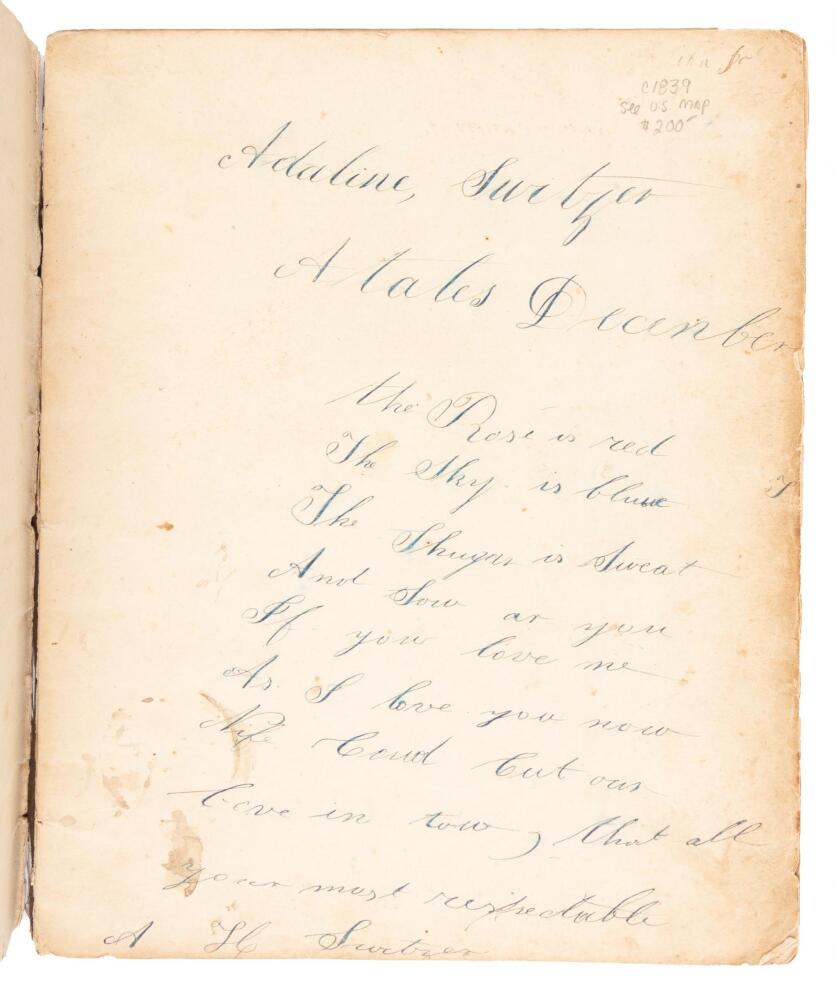 c1839
see U.S. map
$200
Adaline, Switzer
Atales December
the Rose is red
The Sky is blue
The Shugar is Sweat
And Sow ar you
If you love me
As I love you now
Nife Coud Cut our
love in tow, that all
your most respectable
A H Switzer